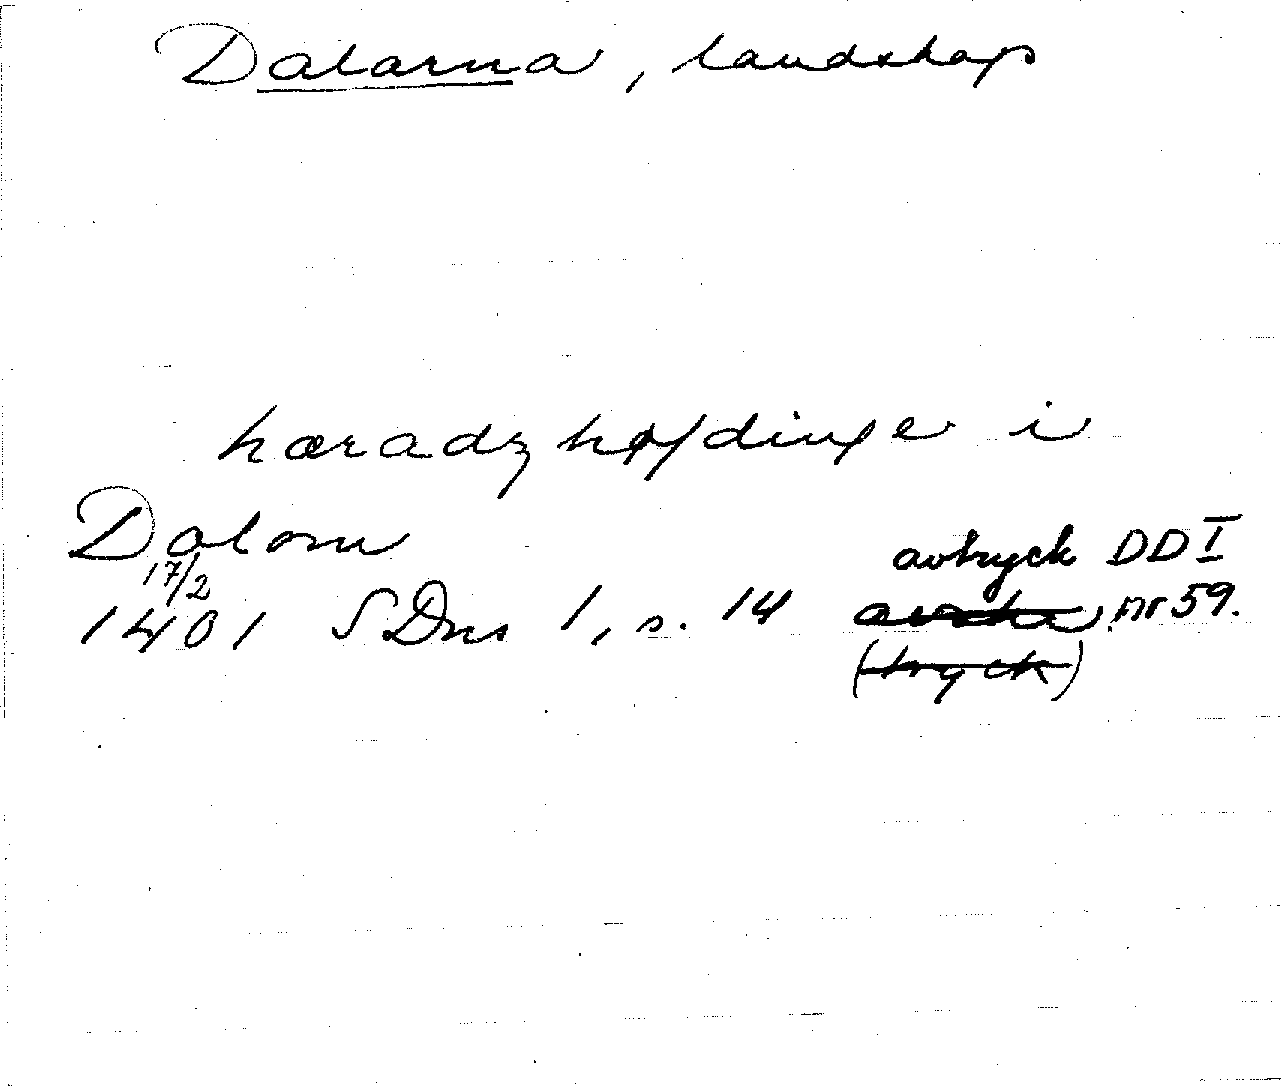 Dalarna, landskap
hæradzhøfdinge i
Dalom
17/2
avtryck DD I
1401 SDns 1, s. 14 avskr, nr 59.
(tryck)